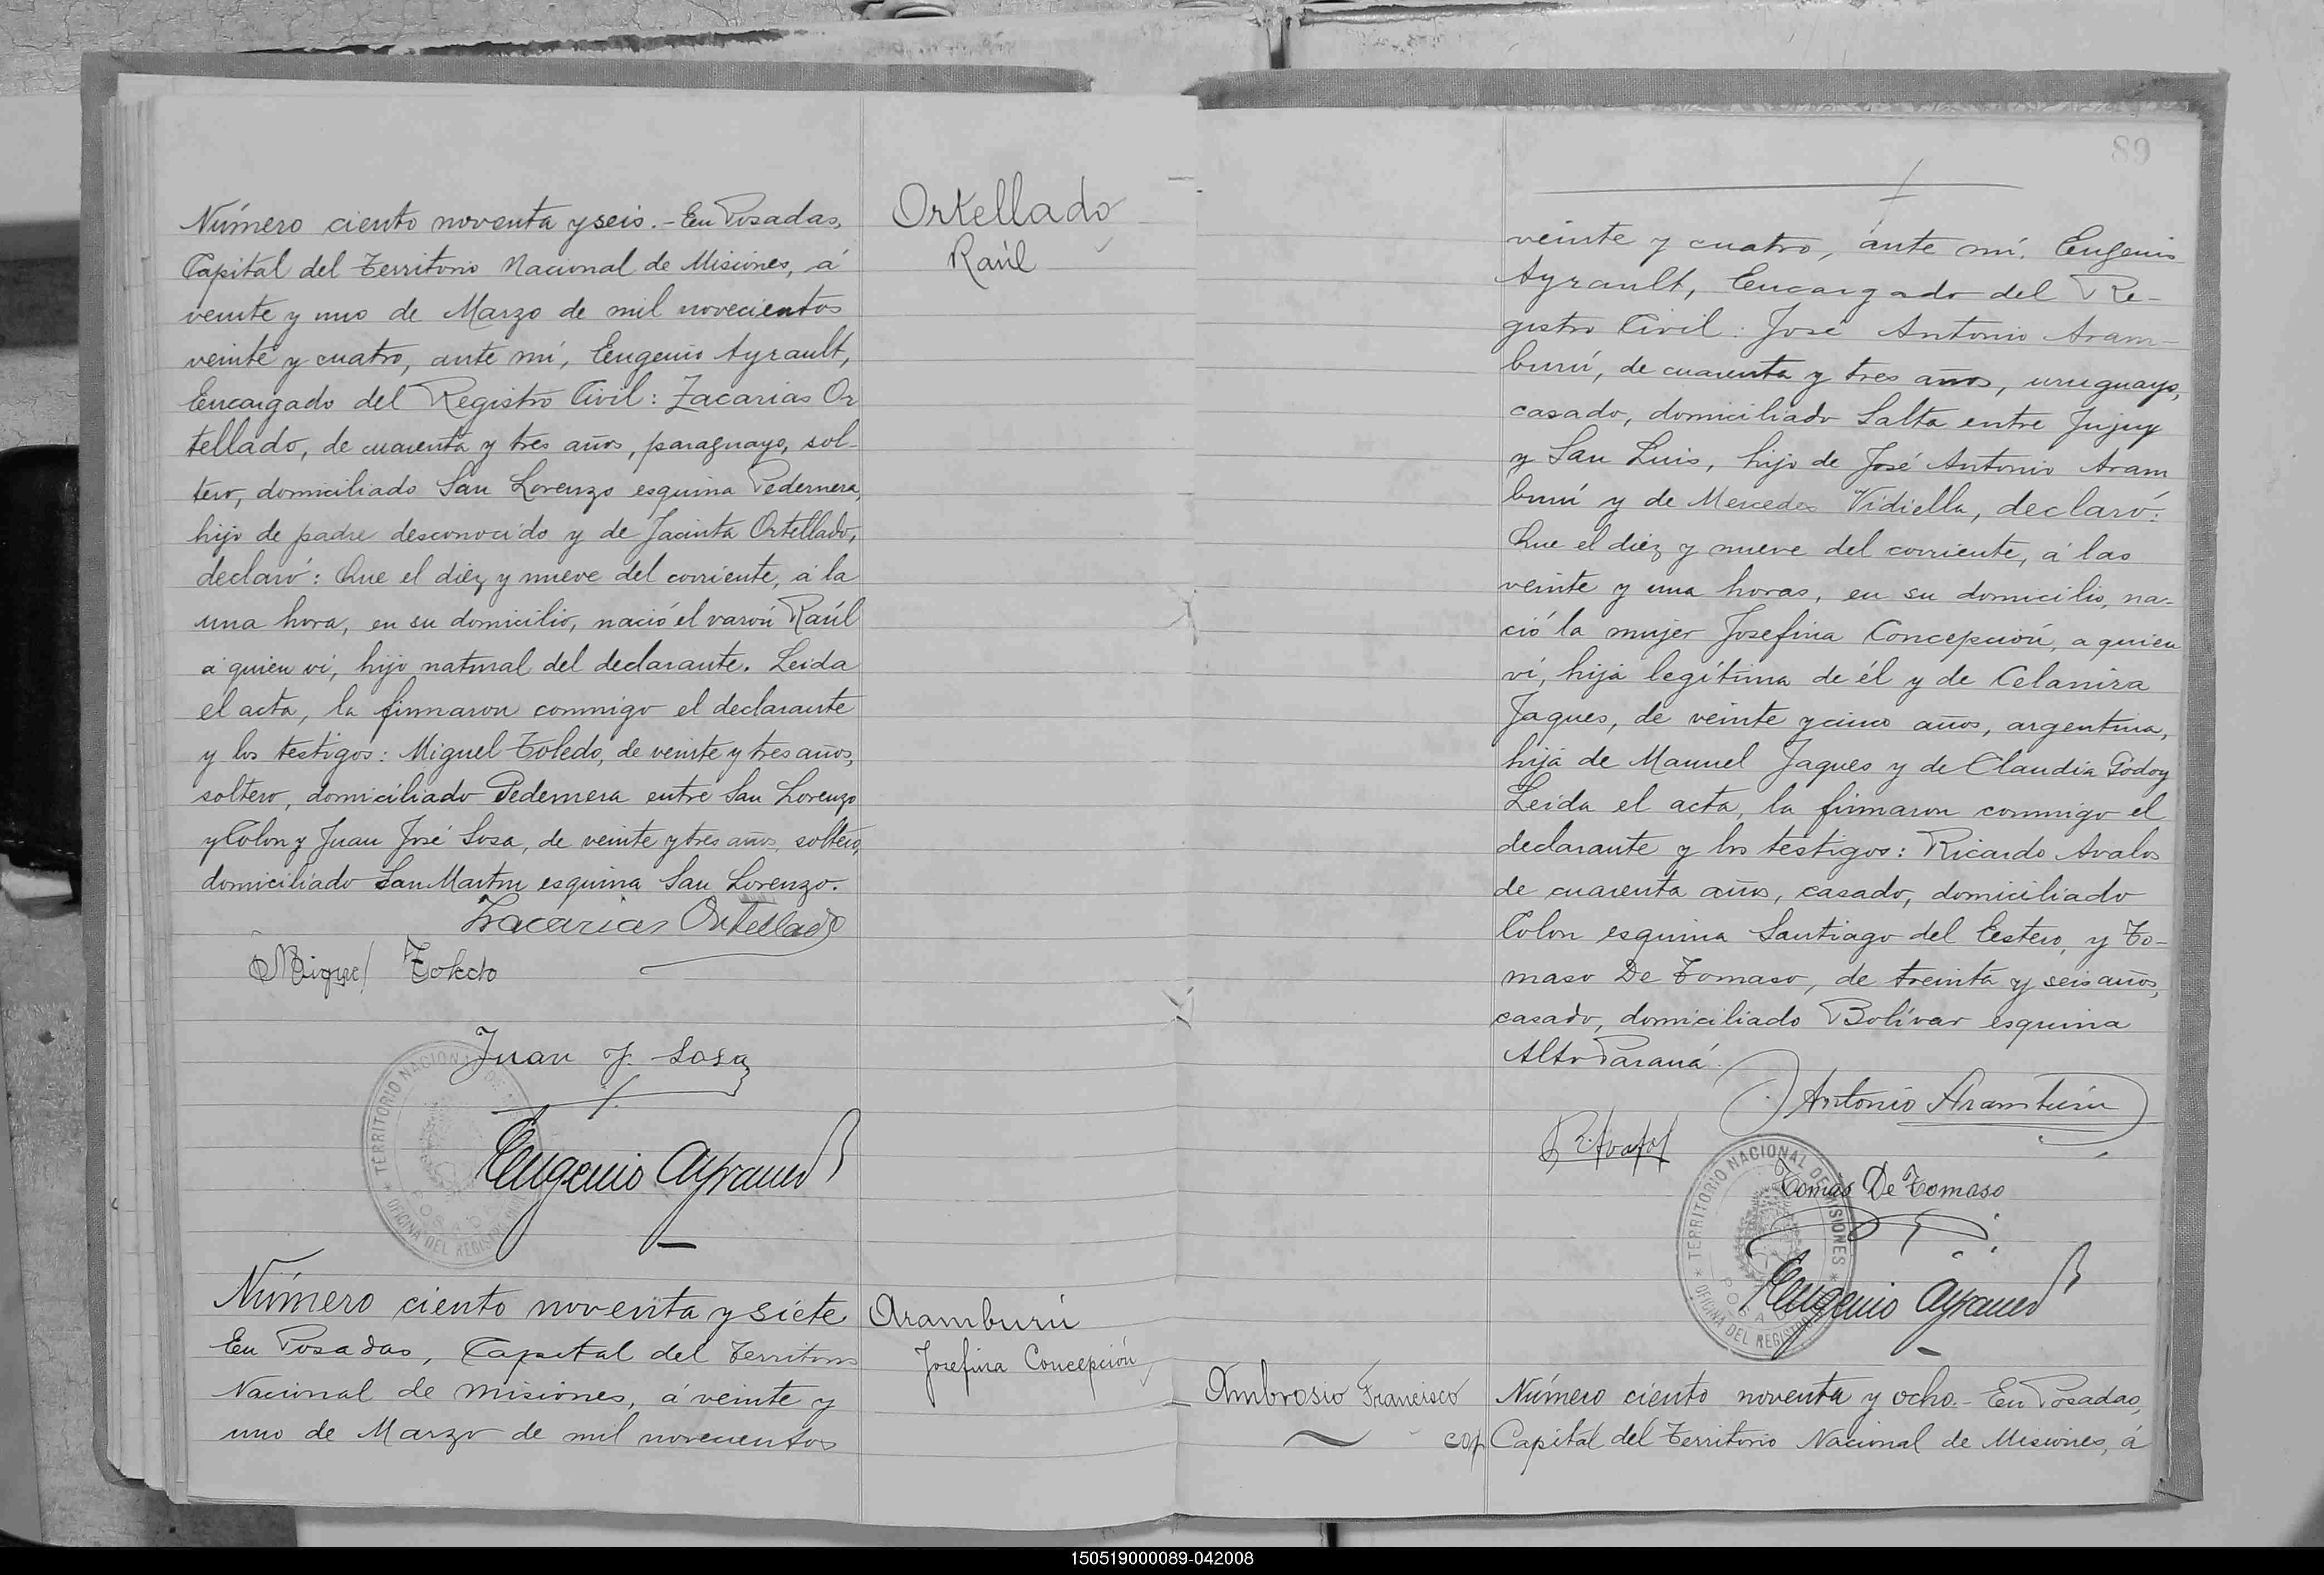 Número ciento noventa y seis.- En Posadas,
Capital del Territorio Nacional de Misiones, á
veinte y uno de Marzo de mil novecientos
veinte y cuatro, ante mí, Eugenio Ayrault,
Encargado del Registro Civil: Zacarias Or
tellado, de cuarenta y tres años, paraguayo, sol-
tero, domiciliado San Lorenzo esquina Pedernera,
hijo de padre desconocido y de Jacinta Ortellado,
declaró: Que el diez y nueve del corriente, á la
una hora, en su domicilio, nació el varón Raúl
á quien ví, hijo natural del declarante. Leida
el acta, la firmaron conmigo el declarante
y los testigos: Miguel Toledo, de veinte y tres años,
soltero, domiciliado Pedernera entre San Lorenzo
y Colon y Juan José Sosa, de veinte y tres años, soltero,
domiciliado San Martin esquina San Lorenzo.
Zacarias Ortellado
Miguel Toledo
Juan J. Sosa
TERRITORIO NACIONAL DE
POSADAS
OFICINA DEL REGISTRO
Eugenio Ayrault
Ortellado
Raúl
Número ciento noventa y siete
En Posadas, Capital del Territorio
Nacional de Misiones, á veinte y
uno de Marzo de mil novecientos
Aramburú
Josefina Concepción
89
veinte y cuatro, ante mí, Eugenio
Ayrault, Encargado del Re-
gistro Civil: José Antonio Aram-
burú, de cuarenta y tres años, uruguayo,
casado, domiciliado Salta entre Jujuy
y San Luis, hijo de José Antonio Aram
burú y de Mercedes Vidiella, declaró:
Que el diez y nueve del corriente, á las
veinte y una horas, en su domicilio, na-
ció la mujer Josefina Concepción, a quien
ví, hija legítima de él y de Celanira
Jaques, de veinte y cinco años, argentina,
hija de Manuel Jaques y de Claudia Godoy
Leida el acta, la firmaron conmigo el
declarante y los testigos: Ricardo Avalos
de cuarenta años, casado, domiciliado
Colon esquina Santiago del Estero, y To-
maso De Tomaso, de treinta y seis años,
casado, domiciliado Bolívar esquina
Alto Paraná.
Antonio Aramburu
R. Avalos
Tomas De Tomaso
TERRITORIO NACIONAL DE MISIONES
POSADAS
OFICINA DEL REGISTRO
Eugenio Ayrault
Ambrosio Francisco
cop
Número ciento noventa y ocho.- En Posadas,
Capital del Territorio Nacional de Misiones, á
150519000089-042008